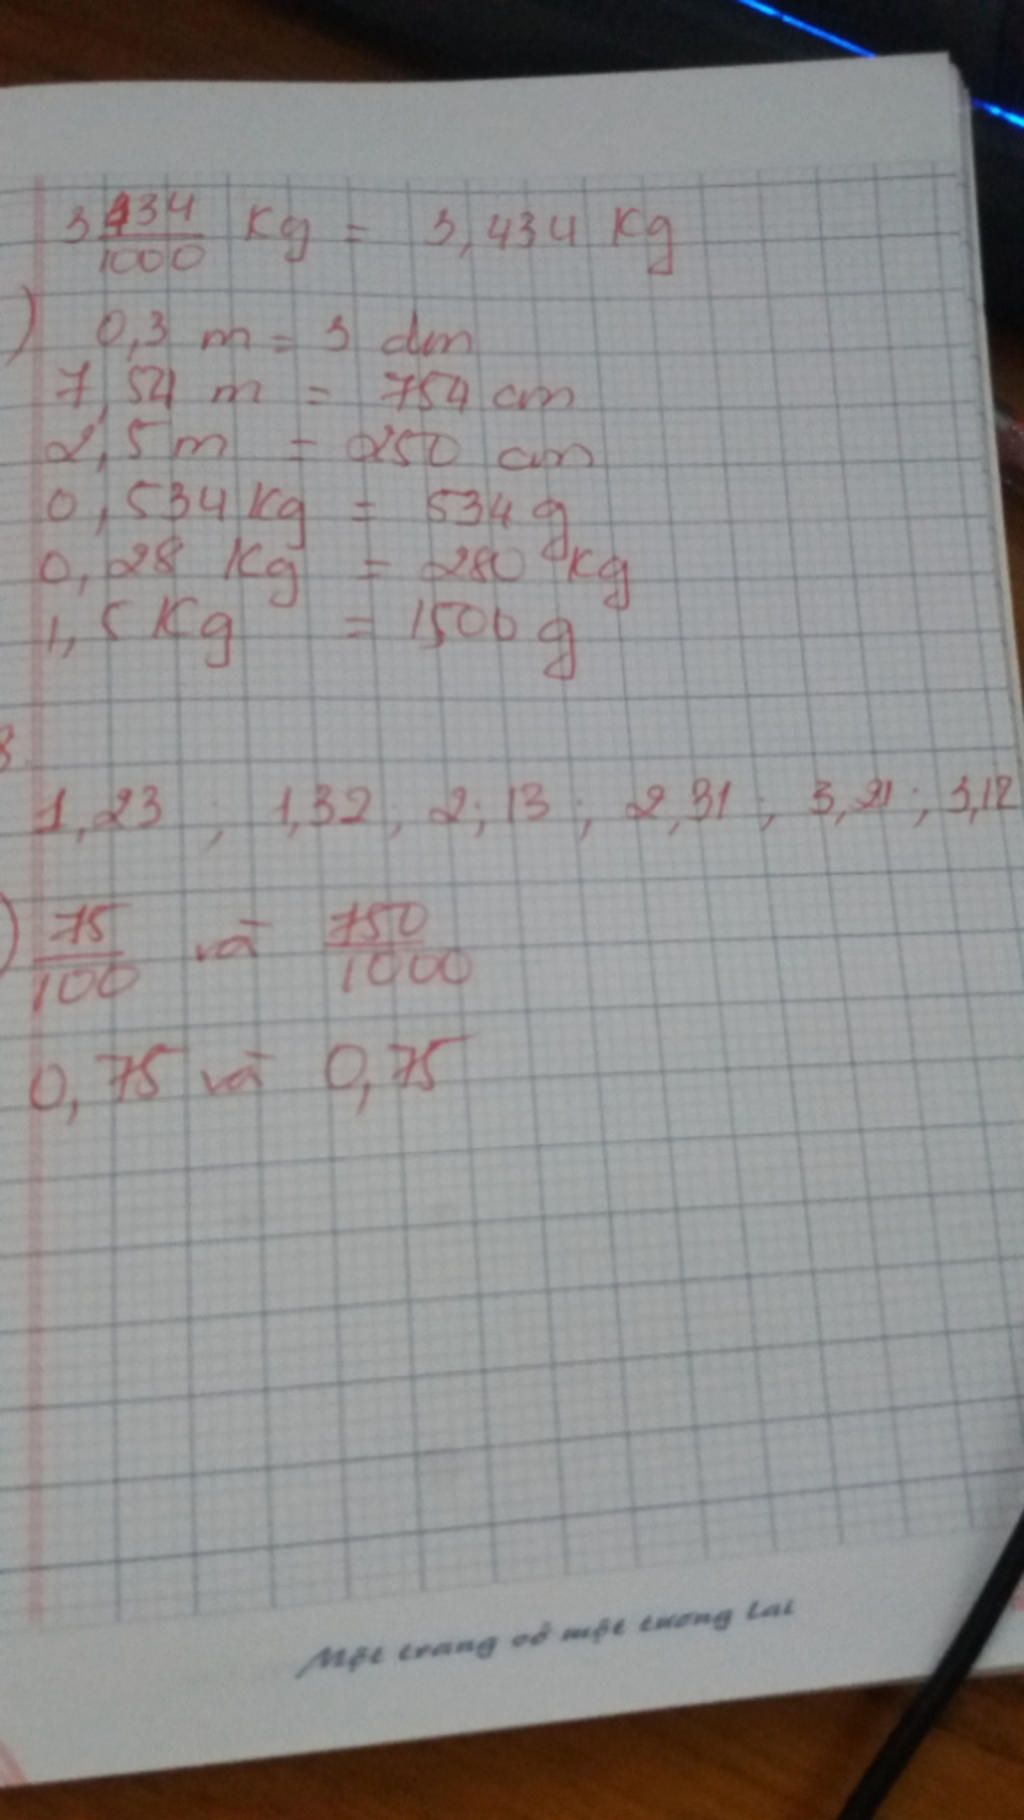 3 434/1000 Kg = 3,434 Kg
) 0,3 m = 3 dm
7,54 m = 754 cm
2,5 m = 250 cm
0,534 Kg = 534 g
0,28 Kg = 280 kg
1,5 Kg = 1500 g
3
1,23 ; 1,32 ; 2;13 ; 2,31 ; 3,21 ; 3,12
) 75/100 và 750/1000
0,75 và 0,75
Một trang vở một tương lai